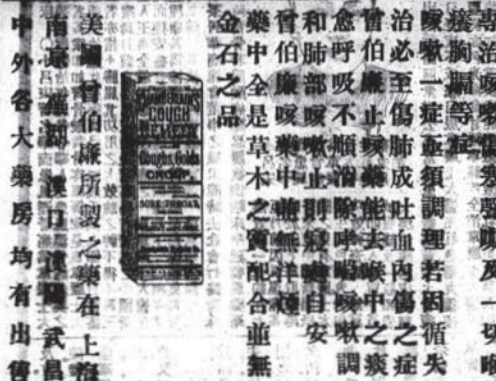 專治咳嗽傷寒聲啞及一切喉
癢胸膈等症
咳嗽一症亟須調理若因循失
治必至傷肺成吐血內傷之症
曾伯廉止咳藥能去喉中之痰
愈呼吸不順消除哮喘咳嗽調
和肺部咳嗽止則寢寐自安
曾伯廉咳藥中並無洋煙
藥中全是草木之質配合並無
金石之品
CHAMBERLAIN'S
COUGH
REMEDY
Coughs, Colds
CROUP,
SORE THROAT,
美國曾伯廉所製之藥在上海
南京蕪湖漢口漢陽武昌
中外各大藥房均有出售